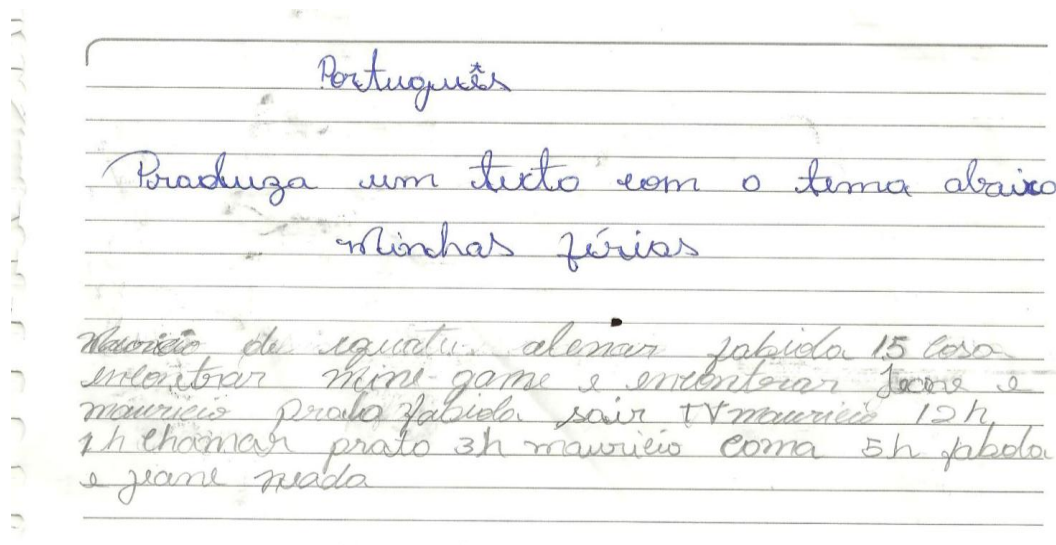 Português
Produza um texto com o tema abaixo
Minhas férias
Mauricio de iguatu. alenar fabiola 15 casa
encontrar mine-game e encontrar Jeane e
mauricio praha fabiola sair TV mauricio 12h
1h chamar prato 3h mauricio coma 5h fabola
e jeane nada